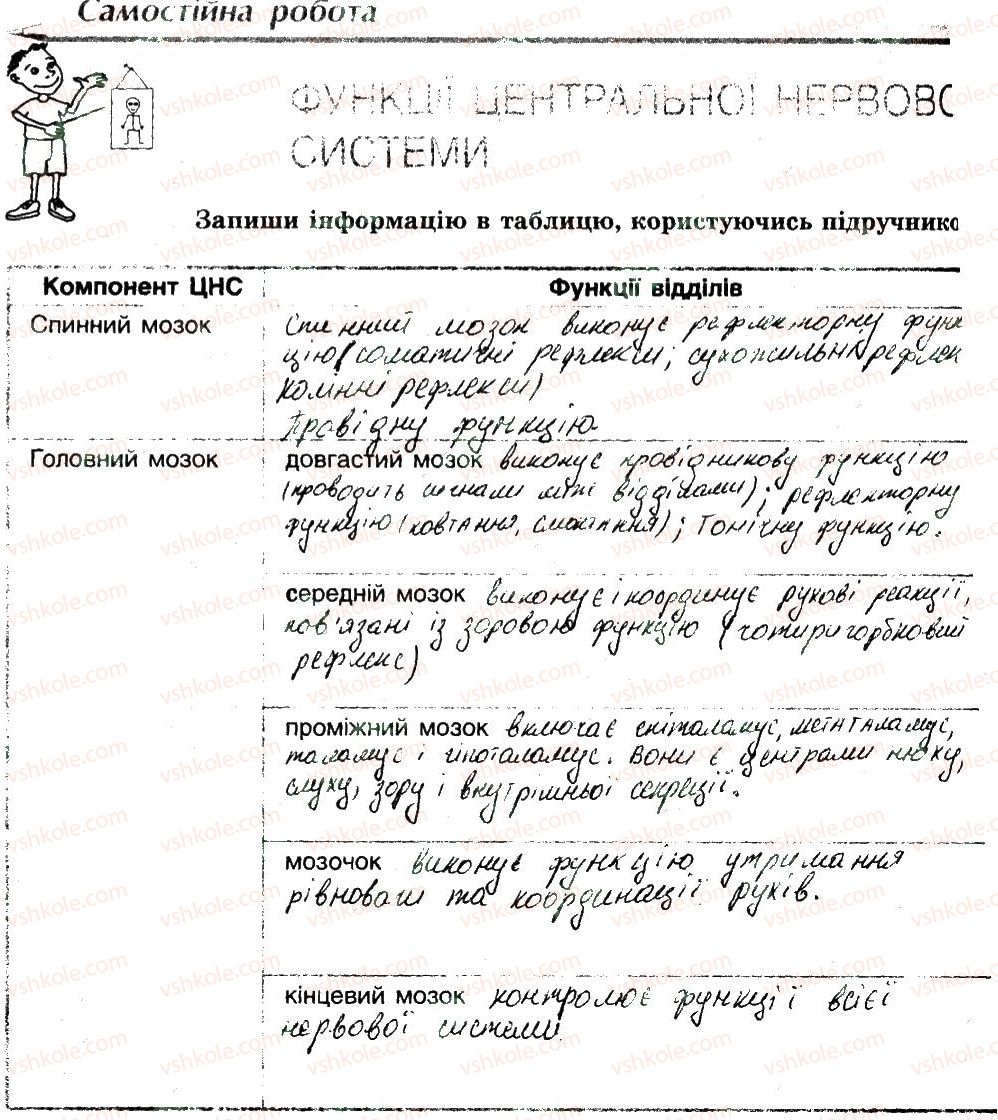 Самостійна робота
ФУНКЦІЇ ЦЕНТРАЛЬНОЇ НЕРВОВО
СИСТЕМИ
Запиши інформацію в таблицю, користуючись підручнико
Компонент ЦНС Функції відділів
Спинний мозок Спинний мозок виконує рефлекторну функ
цію (соматичні рефлекси; сухожильні рефлек
комнні рефлекси)
Провідну функцію.
Головний мозок довгастий мозок виконує провідникову функцію
(проводить сигнали між відділами); рефлекторну
функцію (ковтання, смоктання); тонічну функцію.
середній мозок виконує і координує рухові реакції,
пов'язані із зоровою функцію (чотиригорбковий
рефлекс)
проміжний мозок включає епіталамус, метаталамус,
таламус і гіпоталамус. Вони є центрами нюху,
слуху, зору і внутрішньої секреції.
мозочок виконує функцію утримання
рівноваги та координації рухів.
кінцевий мозок контролює функції всієї
нервової системи
vshkole.com